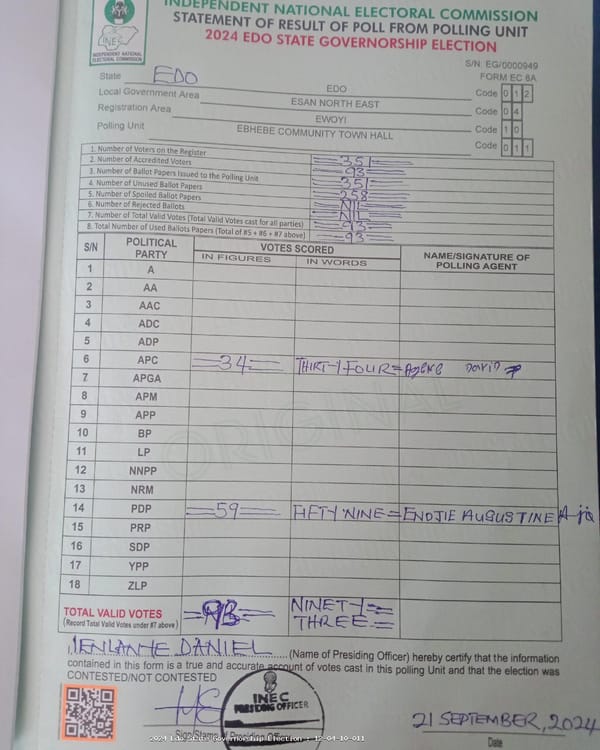 INDEPENDENT NATIONAL ELECTORAL COMMISSION
STATEMENT OF RESULT OF POLL FROM POLLING UNIT
2024 EDO STATE GOVERNORSHIP ELECTION
INEC
INDEPENDENT NATIONAL
ELECTORAL COMMISSION
S/N: EG/0000949
FORM EC 8A
State EDO EDO Code 0 1 2
Local Government Area ESAN NORTH EAST Code 0 4
Registration Area EWOYI Code 1 0
Polling Unit EBHEBE COMMUNITY TOWN HALL Code 0 1 1
1. Number of Voters on the Register 351
2. Number of Accredited Voters 93
3. Number of Ballot Papers Issued to the Polling Unit 351
4. Number of Unused Ballot Papers 258
5. Number of Spoiled Ballot Papers NIL
6. Number of Rejected Ballots NIL
7. Number of Total Valid Votes (Total Valid Votes cast for all parties) 93
8. Total Number of Used Ballots Papers (Total of #5 + #6 + #7 above) 93
S/N POLITICAL PARTY VOTES SCORED NAME/SIGNATURE OF POLLING AGENT
IN FIGURES IN WORDS
1 A
2 AA
3 AAC
4 ADC
5 ADP
6 APC 34 THIRTY FOUR David
7 APGA
8 APM
9 APP
10 BP
11 LP
12 NNPP
13 NRM
14 PDP 59 FIFTY NINE ENOJIE AUGUSTINE
15 PRP
16 SDP
17 YPP
18 ZLP
ORIGINAL
TOTAL VALID VOTES 93 NINETY
(Record Total Valid Votes under #7 above) THREE
DANIEL (Name of Presiding Officer) hereby certify that the information
contained in this form is a true and accurate account of votes cast in this polling Unit and that the election was
CONTESTED/NOT CONTESTED
INEC
PRESIDING OFFICER
Sign/Stamp of Presiding Officer
21 SEPTEMBER, 2024
Date
2024 Edo State Governorship Election : 12-04-10-011